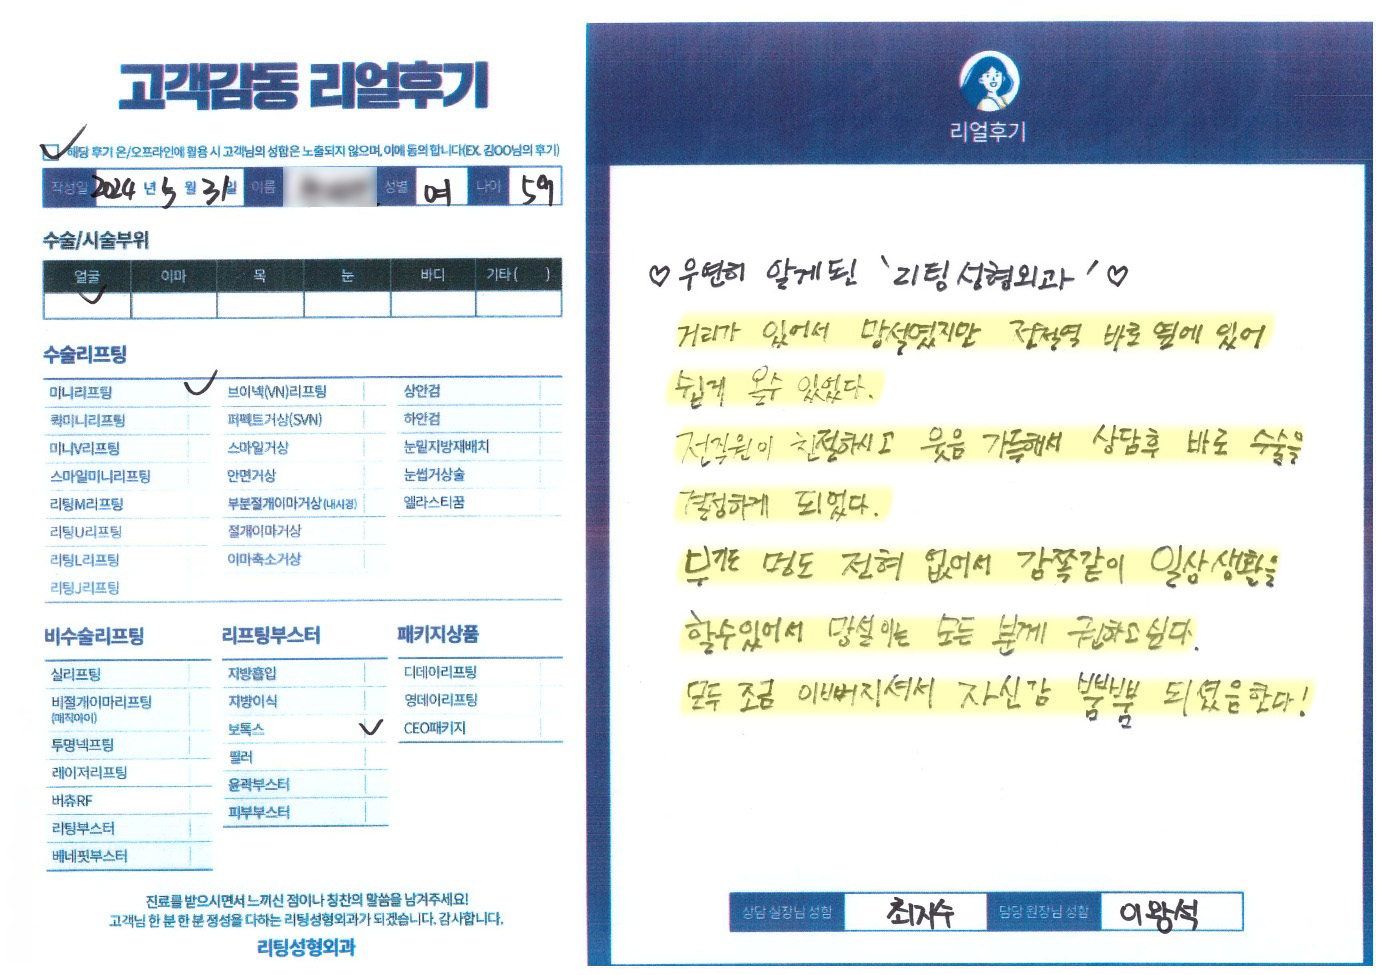 고객감동 리얼후기
해당 후기 온/오프라인에 활용 시 고객님의 성함은 노출되지 않으며, 이에 동의 합니다(EX. 김OO님의 후기)
작성일 2024 년 5 월 31 일 이름 성별 여 나이 59
수술/시술부위
얼굴 이마 목 눈 바디 기타( )
수술리프팅
미니리프팅 브이넥(VN)리프팅 상안검
퀵미니리프팅 퍼펙트거상(SVN) 하안검
미니V리프팅 스마일거상 눈밑지방재배치
스마일미니리프팅 안면거상 눈썹거상술
리팅M리프팅 부분절개이마거상(내시경) 엘라스티꿈
리팅U리프팅 절개이마거상
리팅L리프팅 이마축소거상
리팅J리프팅
비수술리프팅 리프팅부스터 패키지상품
실리프팅 지방흡입 디데이리프팅
비절개이마리프팅 지방이식 영데이리프팅
(매직아이)
투명넥프팅 보톡스 CEO패키지
레이저리프팅 필러
버츄RF 윤곽부스터
리팅부스터 피부부스터
베네핏부스터
진료를 받으시면서 느끼신 점이나 칭찬의 말씀을 남겨주세요!
고객님 한 분 한 분 정성을 다하는 리팅성형외과가 되겠습니다. 감사합니다.
리팅성형외과
리얼후기
♡ 우연히 알게된 '리팅성형외과' ♡
거리가 있어서 망설였지만 전철역 바로 옆에 있어
쉽게 올수 있었다.
전직원이 친절하시고 웃음 가득해서 상담후 바로 수술을
결정하게 되었다.
붓기도 멍도 전혀 없어서 감쪽같이 일상생활을
할수있어서 망설이는 모든 분께 권하고싶다.
모두 조금 이뻐지셔서 자신감 뿜뿜 되셨음한다!
상담 실장님 성함 최지수 담당 원장님 성함 이왕석